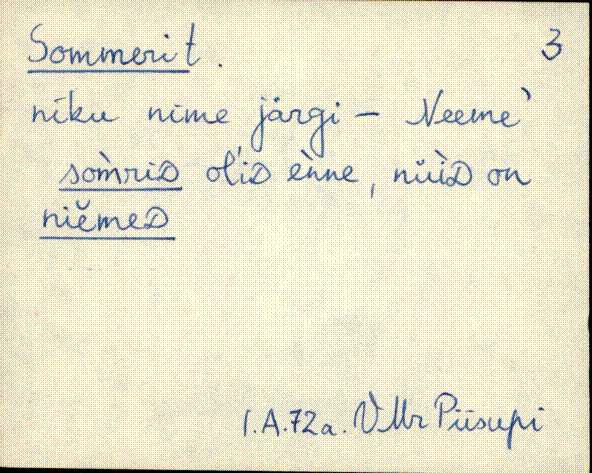 Sommerit. 3
niku nime järgi - Neeme'
som̀riD ol'iD èǹne, nǜìD on
niĕmeD
I.A.72a. VMr Piisupi